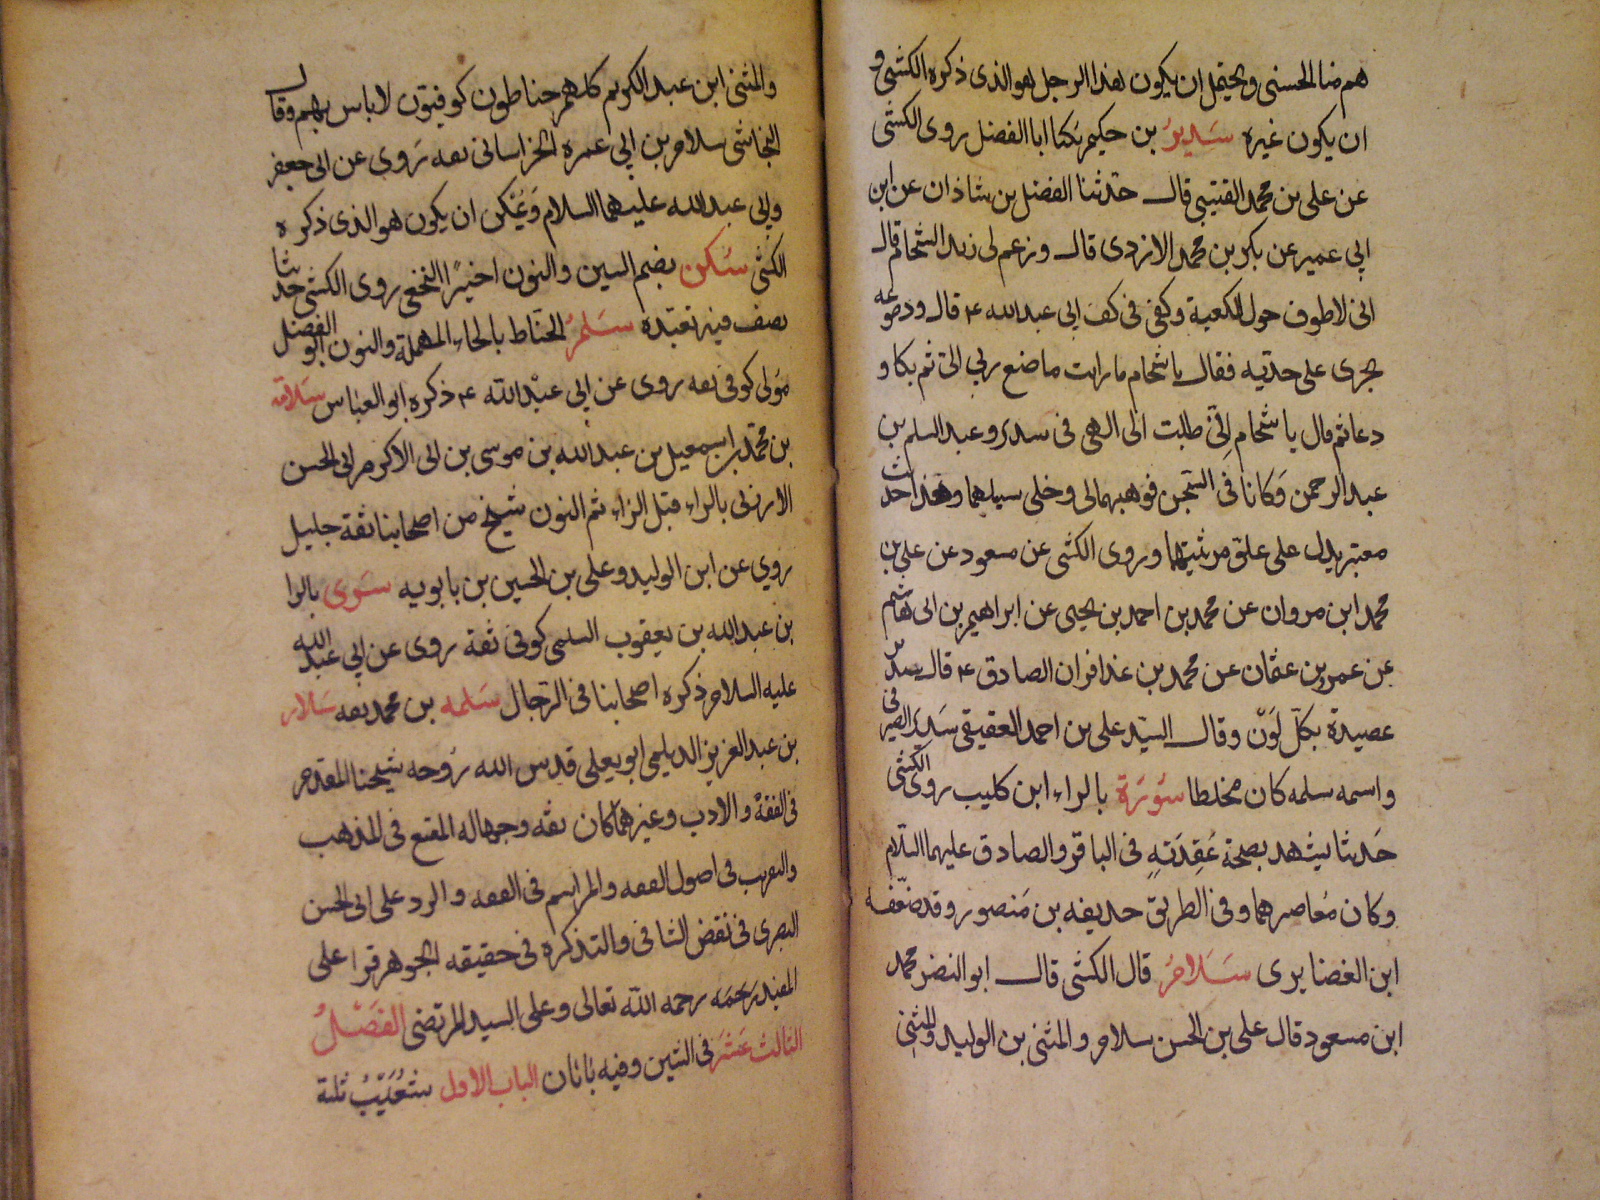 هم منا لحسنى ويحتمل ان يكون هذا الرجل هو الذى ذكره الكشى و
ان يكون غيره سَديرُ بن حكيم يكنا ابا الفضل روى الكشى
عن على بن محمد القتيبى قال حدثنا الفضل بن شاذان عن ابن
ابى عمير عن بكر بن محمد الازدى قال وزعم لى زيد الشحام قال
انى لاطوف حول الكعبة وكفى فى كف ابى عبد الله ع قال ودموعه
يجرى على خديه فقال يا شحام ما رايت ما صنع ربى الىّ ثم بكا و
دعا ثم قال يا شحام اِنّى طلبت الى الهى فى سدير وعبد السلم بن
عبد الرحمن وَكانا فى السّجن فوهبهما لى وخلى سبيلهما وهذا حديث
معتبر يدل على علوّ مرتبتهما وروى الكشى عن مسعود عن على بن
محمد ابن مروان عن محمد بن احمد بن يحيى عن ابراهيم بن ابى هاشم
عن عمرو بن عثمان عن محمد بن عذافر ان الصادق ع قال سدير
عصيدة بكلّ لَوْن وقال السيّد على بن احمد العقيقى سَدير الصيرفى
واسمه سلمه كان مخلطا سَوْرَة بالراء ابن كليب روى الكشى
حَديثا يشهد بصحة عُقِدَتِهِ فى الباقر والصادق عليهما السّلام
وكان مُعاصرهما وفى الطريق حديفه بن مَنصور وقد ضعّفه
ابن الغضايرى سَلامُ قال الكشى قال ابو النضر محمد
ابن مسعود قال على بن الحسن سلام والمثنى بن الوليد والمثنى
والمثنى ابن عبد الكريم كلهم حناطون كوفيّون لا باس بهم وقال
النجاشى سلام بن ابى عمره الخراسانى ثقه رَوى عن ابى جعفر
وابى عبد الله عليهما السلام وَيُمْكن ان يكون هو الذى ذكره
الكشى سُكن بضم السين والنون اخيرًا النخعى روى الكشى حديثا
يصف فيه تعبّده سَلمُ الحنّاط بالحاء المهملة والنون ابو الفضل
مَولى كوفى ثقه روى عن ابى عبْد الله ع ذكره ابو العباس سَلامة
بن محمّد بن اسمعيل بن عبد الله بن موسى بن ابى الاكرم ابى الحسن
الارزنى بالراء قبل الزاء ثم النون شيخ من اصحابنا ثقة جليل
روي عن ابن الوليد وعلى بن الحسين بن بابويه سَوى بالرا
بن عبد الله بن يعقوب السلمى كوفى ثقة روى عن ابى عبد الله
عليه السلام ذكره اصحابنا فى الرّجال سَلمه بن محمد ثقه سَلار
بن عبد العزيز الديلمى ابو يعلى قدس الله رُوحه شيخنا المقدم
فى الفقه والادب وغيرهما كان ثقه وجها له المقنع فى المذهب
والتقريب فى اصول الفقه والمراسم فى الفقه والرد على ابى الحسن
البصرى فى نقض الشافى والتذكره فى حقيقه الجوهر قرا على
المفيد رَحمَه رحمه اللّه تعالى وعلى السيد المرتضى الفَصْلُ
الثالث عَشَر فى الشين وفيه بابان الباب الاول شُعَيْبُ ثلثة